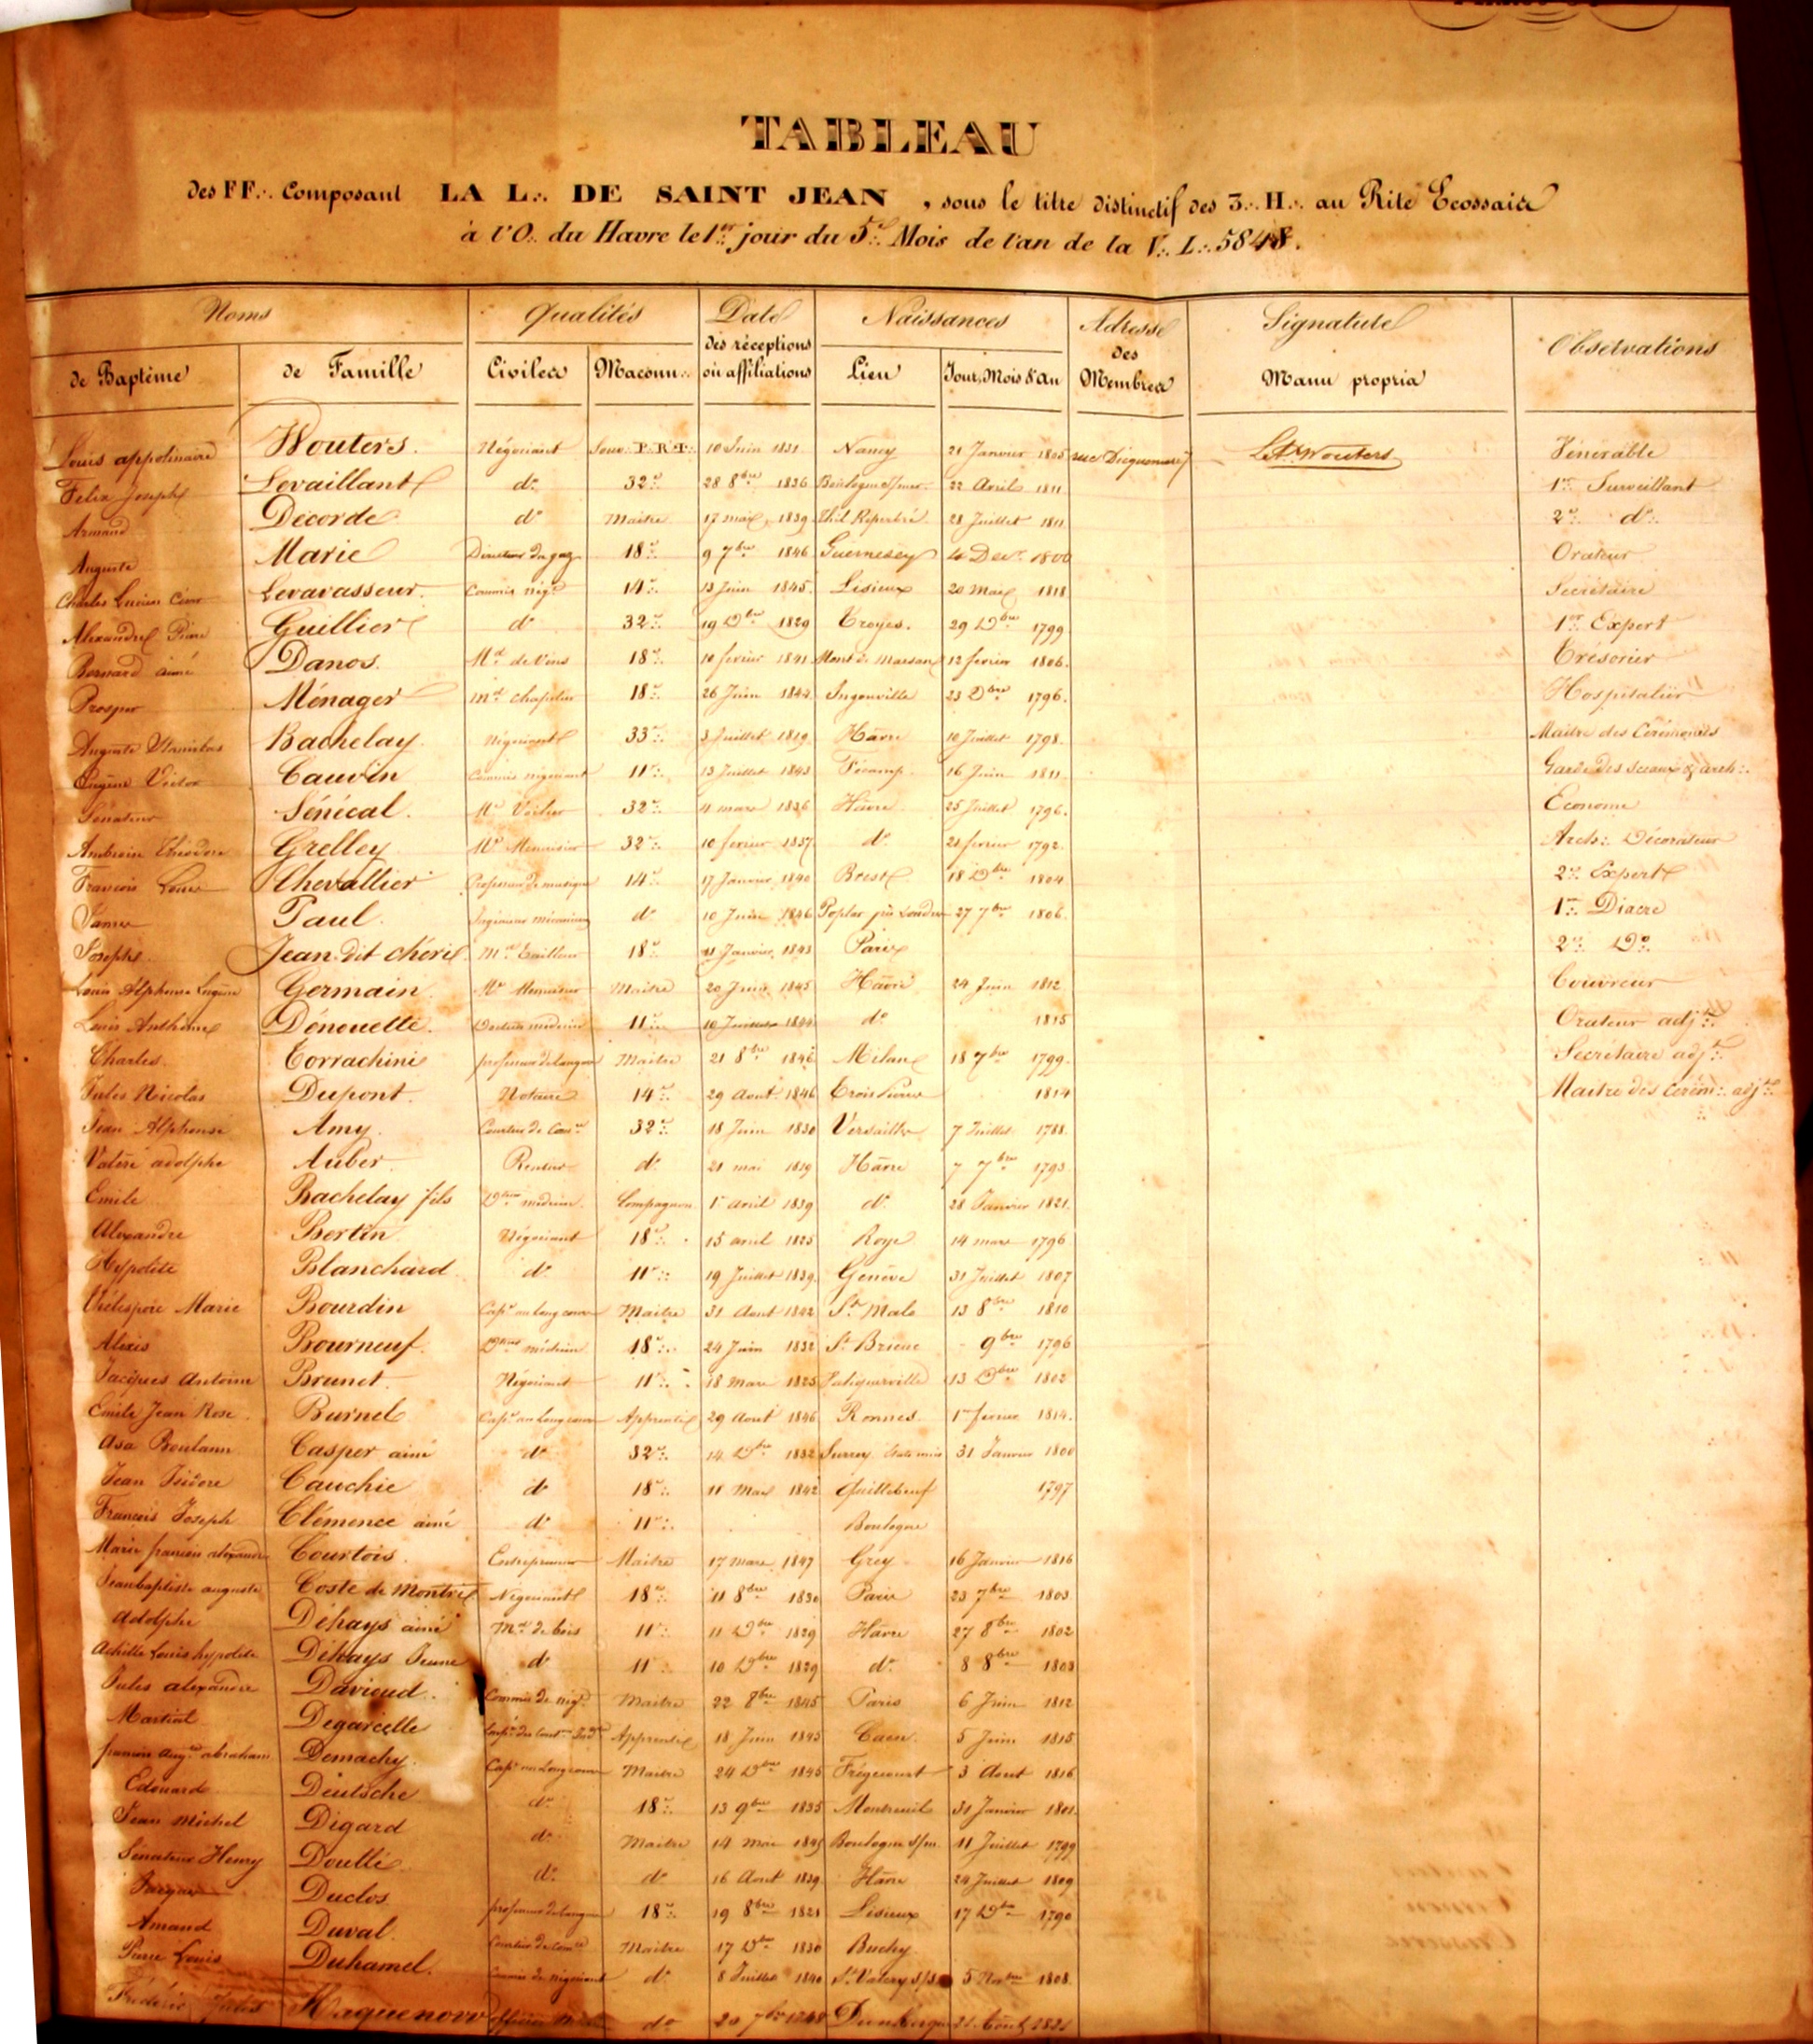 TABLEAU
des FF∴ Composant LA L∴ DE SAINT JEAN , sous le titre distinctif des 3∴ H∴ au Rite Ecossais
à l'O∴ du Havre le 1er jour du 5e Mois de l'an de la V∴ L∴ 5848.
Noms Qualités Date Naissances Adresse Signature Observations
des réceptions des
de Baptême de Famille Civiles Maconn∴ ou affiliations Lieu Jour, Mois & an Membres Manu propria
Louis appolinaire Wouters. Négociant Souv∴ P∴R∴T∴ 10 Juin 1831 Nancy 21 Janvier 1805 rue Dicquemare L. A. Wouters Vénérable
Felix Joseph Levaillant do 32e∴ 28 8bre 1836 Boulogne s/mer 22 Avril 1811 1er Surveillant
Armand Decorde do Maitre 17 mai 1839 28 Juillet 1811 2e∴ do∴
Auguste Marie Directeur du gaz 18e∴ 9 7bre 1846 Guernesey 4 Decr 1800 Orateur
Charles Lucien César Levavasseur. Commis négt 14e∴ 13 Juin 1845. Lisieux 20 Mai 1818 Secrétaire
Alexandre Pierre Guillier do 32e∴ 19 Dbre 1829 Troyes. 29 Dbre 1799 1er Expert
Bernard aimé Danos. Md de Vins 18e∴ 10 fevrier 1841 Mont de Marsan 12 fevrier 1806. Trésorier
Prosper Ménager md chapelier 18e∴ 26 Juin 1844 Ingouville 23 Dbre 1796. Hospitalier
Auguste Stanislas Bachelay. Négociant 33e∴ 3 Juillet 1819 Hâvre 10 Juillet 1798. Maitre des Cérémonies
Eugène Victor Cauvin Commis négociant 11e∴ 13 Juillet 1843 Fécamp. 16 Juin 1811 Garde des Sceaux & arch∴
Sénateur Sénécal. Me Voilier 32e∴ 4 mars 1836 Hâvre 25 Juillet 1796. Econome
Ambroise Théodore Grelley Me Menuisier 32e∴ 10 fevrier 1837 do 21 fevrier 1792. Arch∴ Décorateur
François Louis Chevallier Professeur de musique 14e∴ 17 Janvier 1840 Brest 18 Dbre 1804 2e Expert
James Paul. Ingénieur mécanicien do 10 Juin 1846 Poplar près Londres 27 7bre 1806. 1er∴ Diacre
Joseph. Jean dit chéri. md Tailleur 18e 11 Janvier 1843 Paris 2e∴ Do∴
Louis Alphonse Eugène Germain. Me Menuisier Maitre 20 Juin 1845 Hâvre 24 Juin 1812 Couvreur
Louis Anthime Dénouette. Docteur médecin 11e∴ 10 Juillet 1844 do 1815 Orateur adjt∴
Charles. Corrachini professeur de langues Maitre 21 8bre 1846 Milan 18 7bre 1799. Secrétaire adjt∴
Jules Nicolas Dupont. Notaire 14e∴ 29 Aout 1846 Trois Pierres 1814 Maitre des Cérém∴ adjt∴
Jean Alphonse Amy. Courtier de Comce 32e∴ 18 Juin 1830 Versailles 7 Juillet 1788.
Valère adolphe Auber Rentier do 21 mai 1819 Hâvre 7 7bre 1793
Emile Bachelay fils Dteur médecin. Compagnon 1er avril 1839 do. 28 Janvier 1821.
Alexandre Bertin. Négociant 18e∴ 15 avril 1825 Roye 14 mars 1796
Hyppolite Blanchard do 11e∴ 19 Juillet 1839. Genève 31 Juillet 1807
Marie Bourdin Capne au long cours Maitre 31 Aout 1842 St Malo 13 8bre 1810
Alexis Bourneuf. Dteur médecin 18e∴ 24 Juin 1832 St Brieuc 9bre 1796
Jacques Antoine Brunet. Négociant 11e∴ 18 Mars 1825 Fatiquerville 13 Dbre 1802
Emile Jean Rose. Burnel Capne au long cours Apprenti 29 Aout 1846 Rennes. 1er fevrier 1814.
Asa Casper ainé do 32e∴ 14 Dbre 1832 Surrey États unis 31 Janvier 1800
Jean Isidore Cauchie do 18e∴ 18 Mai 1842 Quillebeuf 1797
François Joseph Clémence ainé do 11e∴ Boulogne
Marie françois alexandre Courtois. Entrepreneur Maitre 17 mars 1847 Grey 16 Janvier 1816
Jean baptiste auguste Coste de Négociant 18e∴ 11 8bre 1830 Paris 23 7bre 1803
Adolphe Déhays ainé Md de bois 11e∴ 11 Dbre 1829 Hâvre 27 8bre 1802
Achille Louis hypolite Déhays Jeune do 11 10 Dbre 1829 do. 8 8bre 1803
Jules alexandre Davioud. Commis de négt Maitre 22 8bre 1845 Paris 6 Juin 1812
Martial Degarcelle Apprenti 18 Juin 1845 Caen. 5 Juin 1815
françois augte abraham Demachy. Capne au long cours Maitre 24 Dbre 1845 3 Aout 1816
Edouard Deutsche do 18e∴ 13 9bre 1835 Montreuil 31 Janvier 1801.
Jean Michel Digard do Maitre 14 Mai 1845 Boulogne s/m. 11 Juillet 1799
Sénateur Henry Doullé do. do 16 Aout 1839 Hâvre 24 Juillet 1809
Jacques Duclos professeur de langues 18e∴ 19 8bre 1821 Lisieux 17 Dbre 1790
Amand Duval. Courtier de Comce Maitre 17 Dbre 1830 Buchy
Pierre Louis Duhamel. Commis de négociant do. 8 Juillet 1840 St Valery s/s 5 Novbre 1808.
Frédéric Jules do 20 7bre 1848 Dunkerque 21 Août 1821